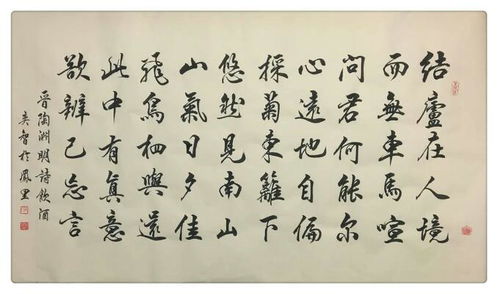 結廬在人境
而無車馬喧
問君何能尔
心遠地自偏
採菊東籬下
悠然見南山
山氣日夕佳
飛鳥相與還
此中有真意
欲辨已忘言
晋陶渊明詩飲酒
智於鳳里